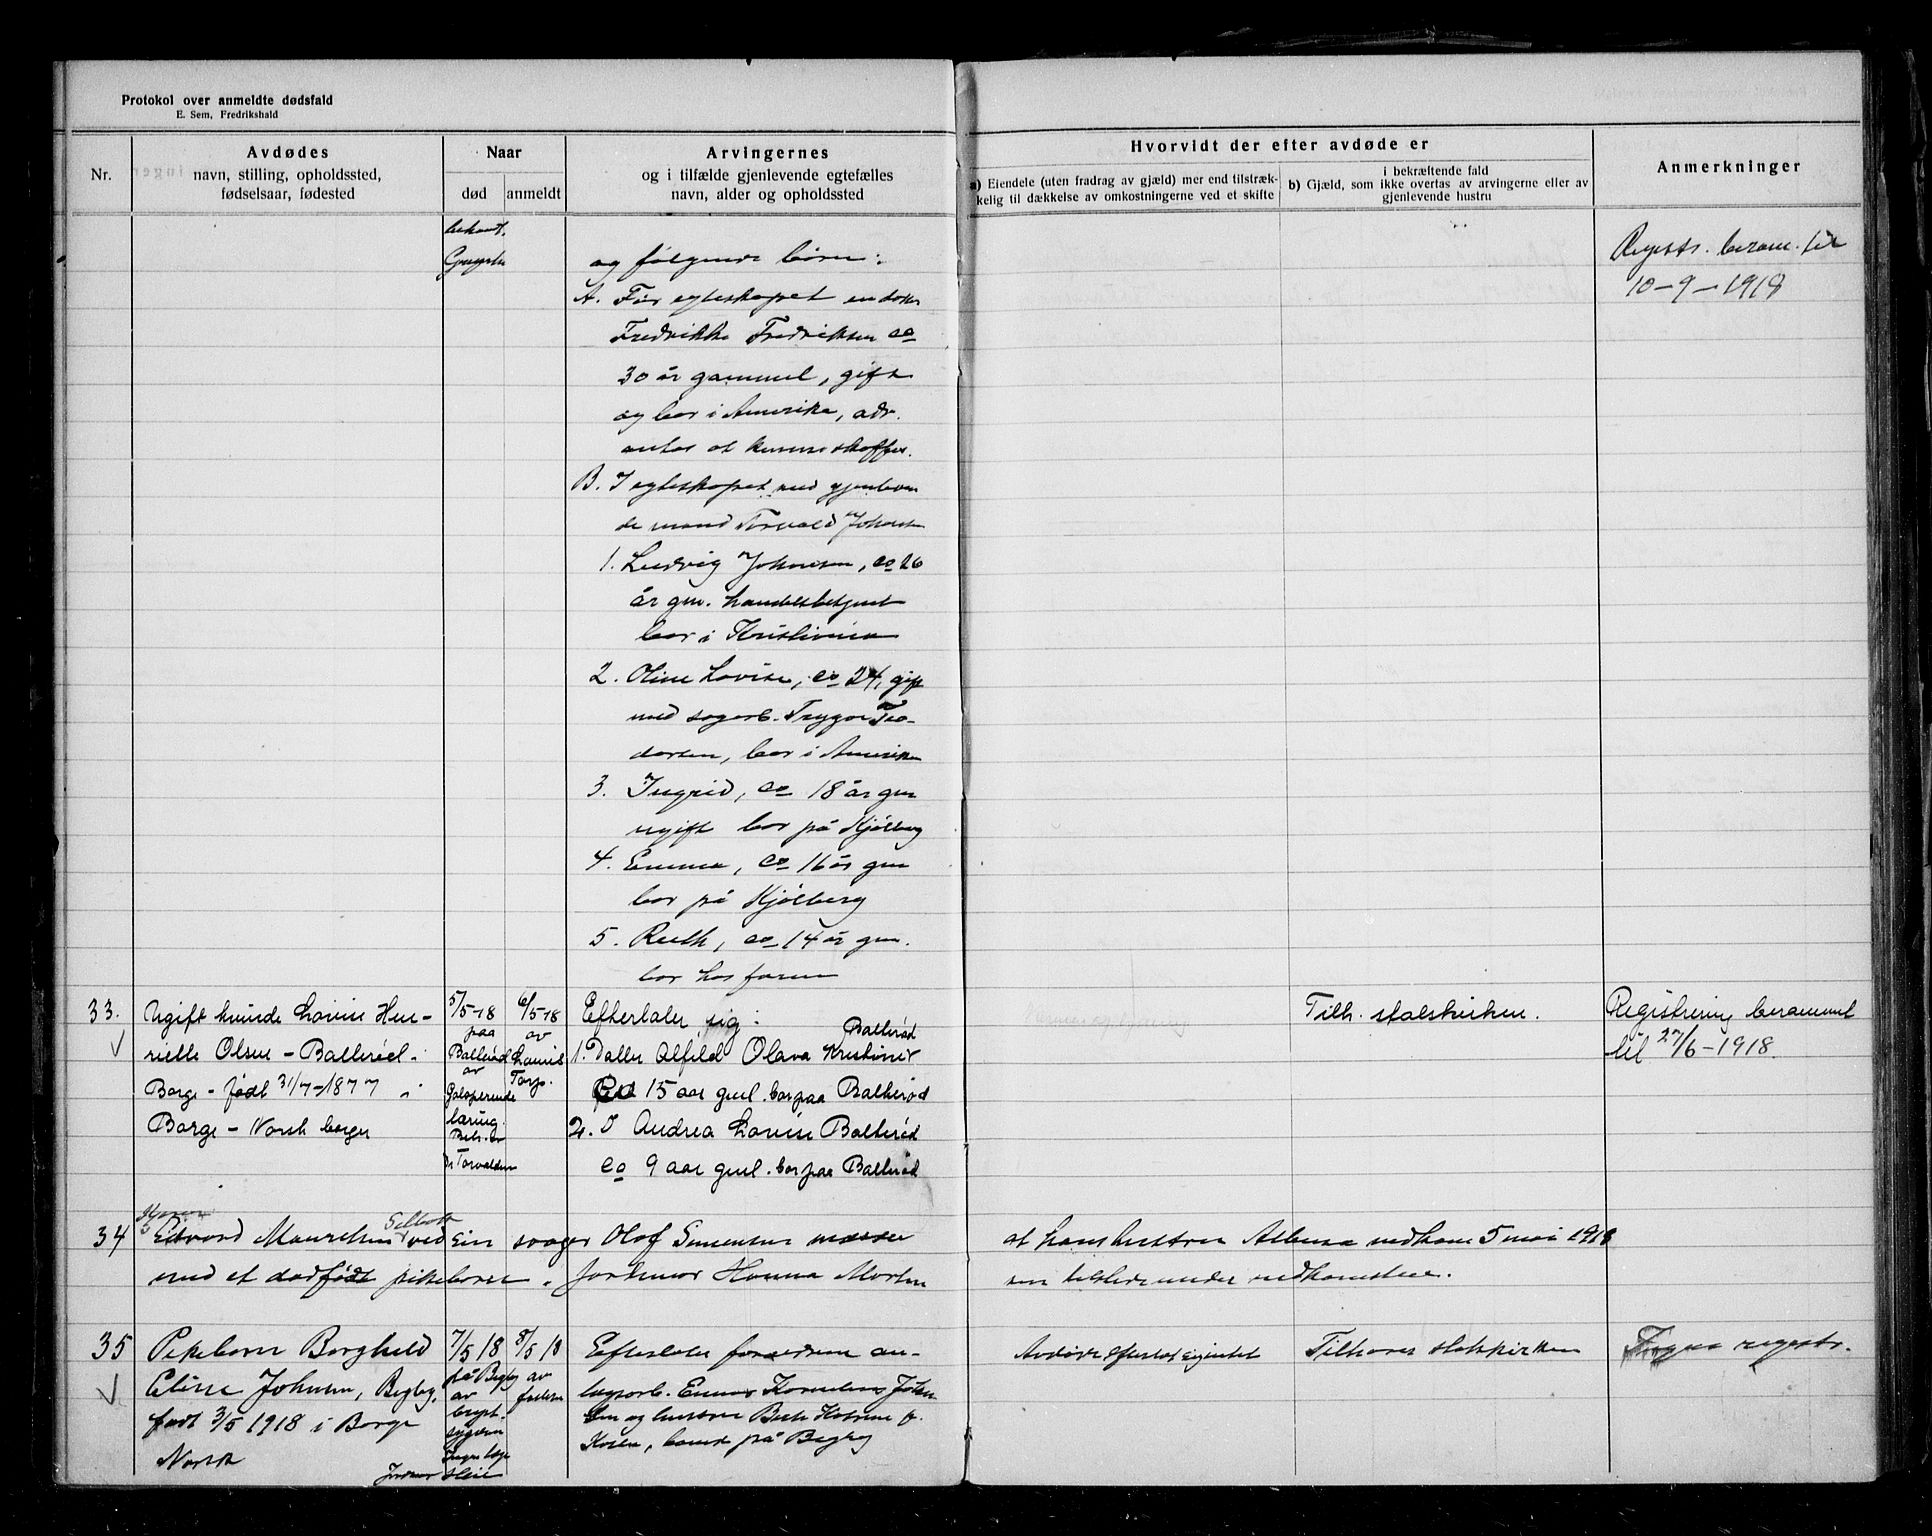 Protokol over anmeldte dødsfald
E. Sem, Fredrikshald
Nr.
Avdødes
navn, stilling, opholdssted,
fødselsaar, fødested
Naar
død
anmeldt
Arvingernes
og i tilfælde gjenlevende egtefælles
navn, alder og opholdssted
Hvorvidt der efter avdøde er
a) Eiendele (uten fradrag av gjæld) mer end tilstræk-
kelig til dækkelse av omkostningerne ved et skifte
i bekræftende fald
b) Gjæld, som ikke overtas av arvingerne eller av
gjenlevende hustru
Anmerkninger
bekant.
og følgende børn:
A. Før egteskapet en datter
Fredrikke Fredriksen ca
30 år gammel, gift
og bor i Amerika, adr.
antas at kunne skaffes.
B. I egteskapet med gjenleven
de mand Torvald Johansen
1. Ludvig Johansen, ca 26
år gm. handelsbetjent
bor i Kristiania
2. Oline Lovise, ca 24, gift
med sagarb. Trygve Teo-
dorsen, bor i Amerika
3. Ingrid, ca 18 år gm
ugift bor på Kjølberg
4. Emma, ca 16 år gm
bor på Kjølberg
5. Ruth, ca 14 år gm.
bor hos faren
Registr. beram. til
10-9-1918
33.
Ugift kvinde Lovise Hen-
riette Olsen - Ballerød i
Borge - født 31/7-1877 i
Borge - Norsk borger
5/5-18
paa
Ballerød
av
Galoperende
tæring.
Beh. av
Dr Torvaldsen
6/5-18
av
Lauris
Torp.
Efterlater sig:
1. Datter Alfild Olava Kristine Ballerød
ca 15 aar gml. bor paa Ballerød
2. Andrea Lovise Ballerød
ca 9 aar gml. bor paa Ballerød
Tilh. statskirken.
Registrering berammet
til 27/6-1918.
34
Edvard Mauretsen Selbak ved sin svager Olaf Simensen
med et dødfødt pikebarn. Jordmor Hanna Morten
at hans hustru Albina nedkom 5 mai 1918
som tilstede under nedkomsten.
35
Pikebarn Borghild
Eline Johnsen, Begby,
født 3/5 1918 i Borge
Norsk
7/5 18
på Begby
av
Ingen læge
Jordmor
8/5 18
av
faderen
Efterlater forældrene an-
lægsarb. Konelius Johan
sen og hustru Katrine f.
bosat på Begby
Avdøde efterlot eiendel
Tilhører statskirken
Ingen registr.